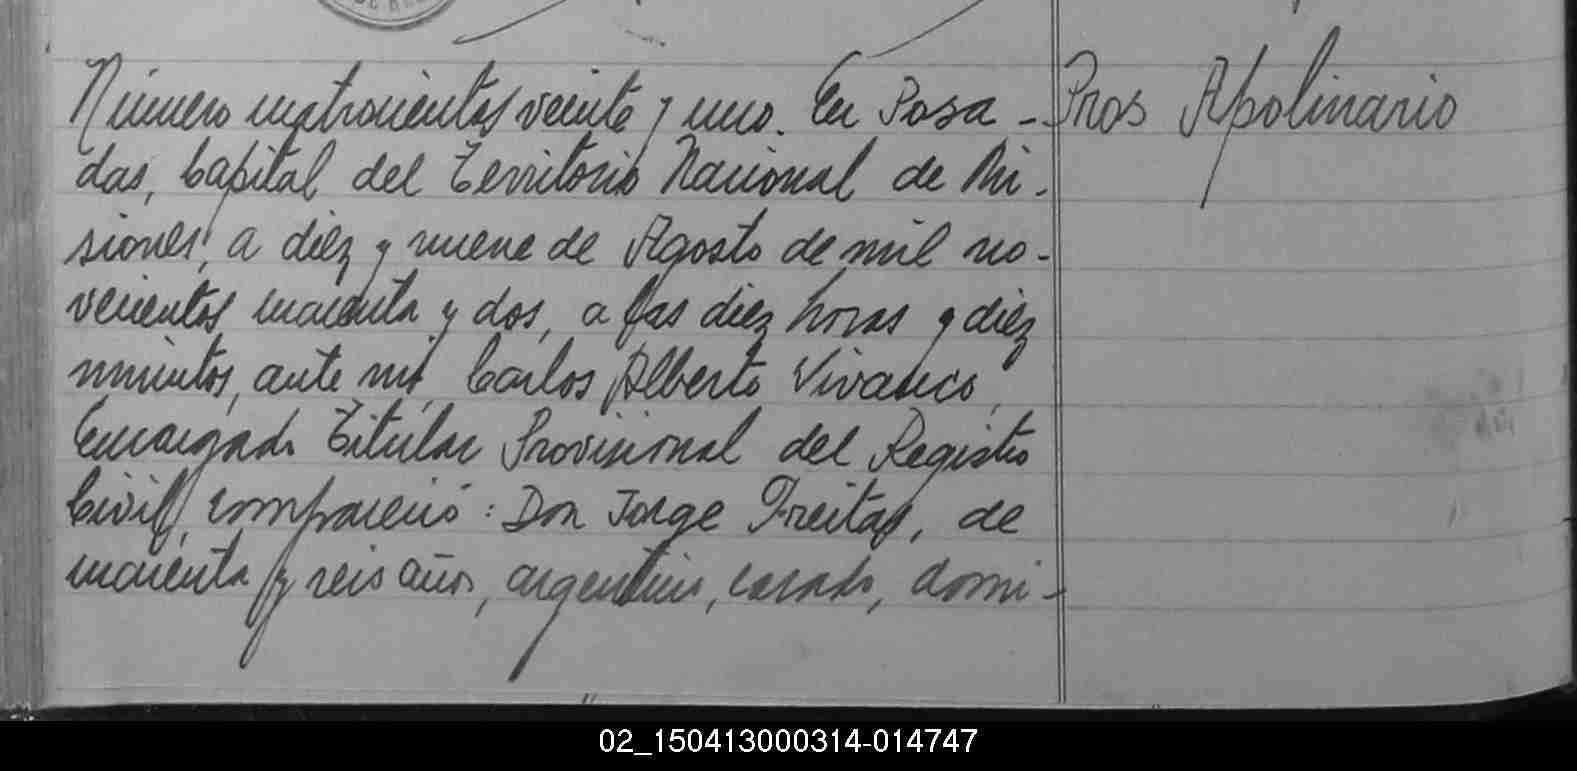 Número cuatrocientos veinte y uno. En Posa-
das, Capital del Territorio Nacional de Mi-
siones, a diez y nueve de Agosto de mil no-
vecientos cuarenta y dos, a las diez horas y diez
minutos, ante mí, Carlos Alberto Vivanco,
Encargado Titular Provisional del Registro
Civil, compareció: Don Jorge Freitas, de
cuarenta y seis años, argentino, casado, domi-
Pros Apolinario
02_150413000314-014747